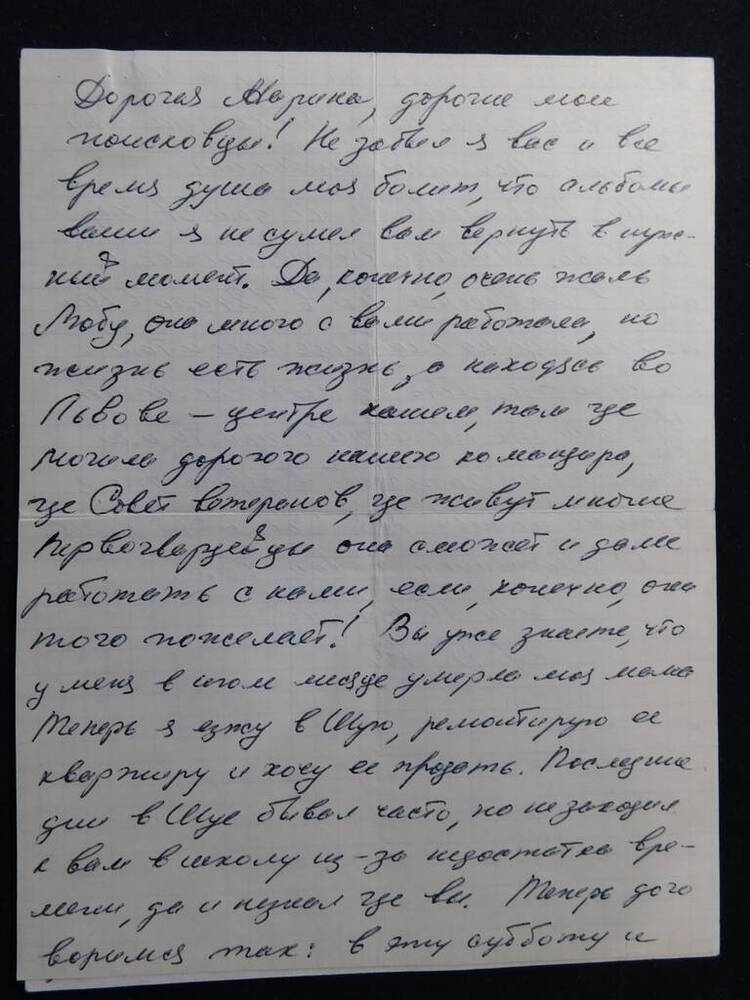 Дорогая Марина, дорогие мои
поисковцы! Не забыл я вас и все
время душа моя болит, что альбомы
ваши я не сумел вам вернуть в нуж-
ный момент. Да, конечно, очень жаль
Любу, она много с вами работала, но
жизнь есть жизнь, а находясь во
Львове – центре нашем, там где
могила дорогого нашего командира,
где Совет ветеранов, где живут многие
первогвардейцы она сможет и далее
работать с нами, если, конечно, она
того пожелает! Вы уже знаете, что
у меня в этом месяце умерла моя мама
Теперь я езжу в Шую, ремонтирую ее
квартиру и хочу ее продать. Последние
дни в Шуе бывал часто, но не заходил
к вам в школу из-за недостатка вре-
мени, да и не знал где вы. Теперь дого
воримся так: в эту субботу и